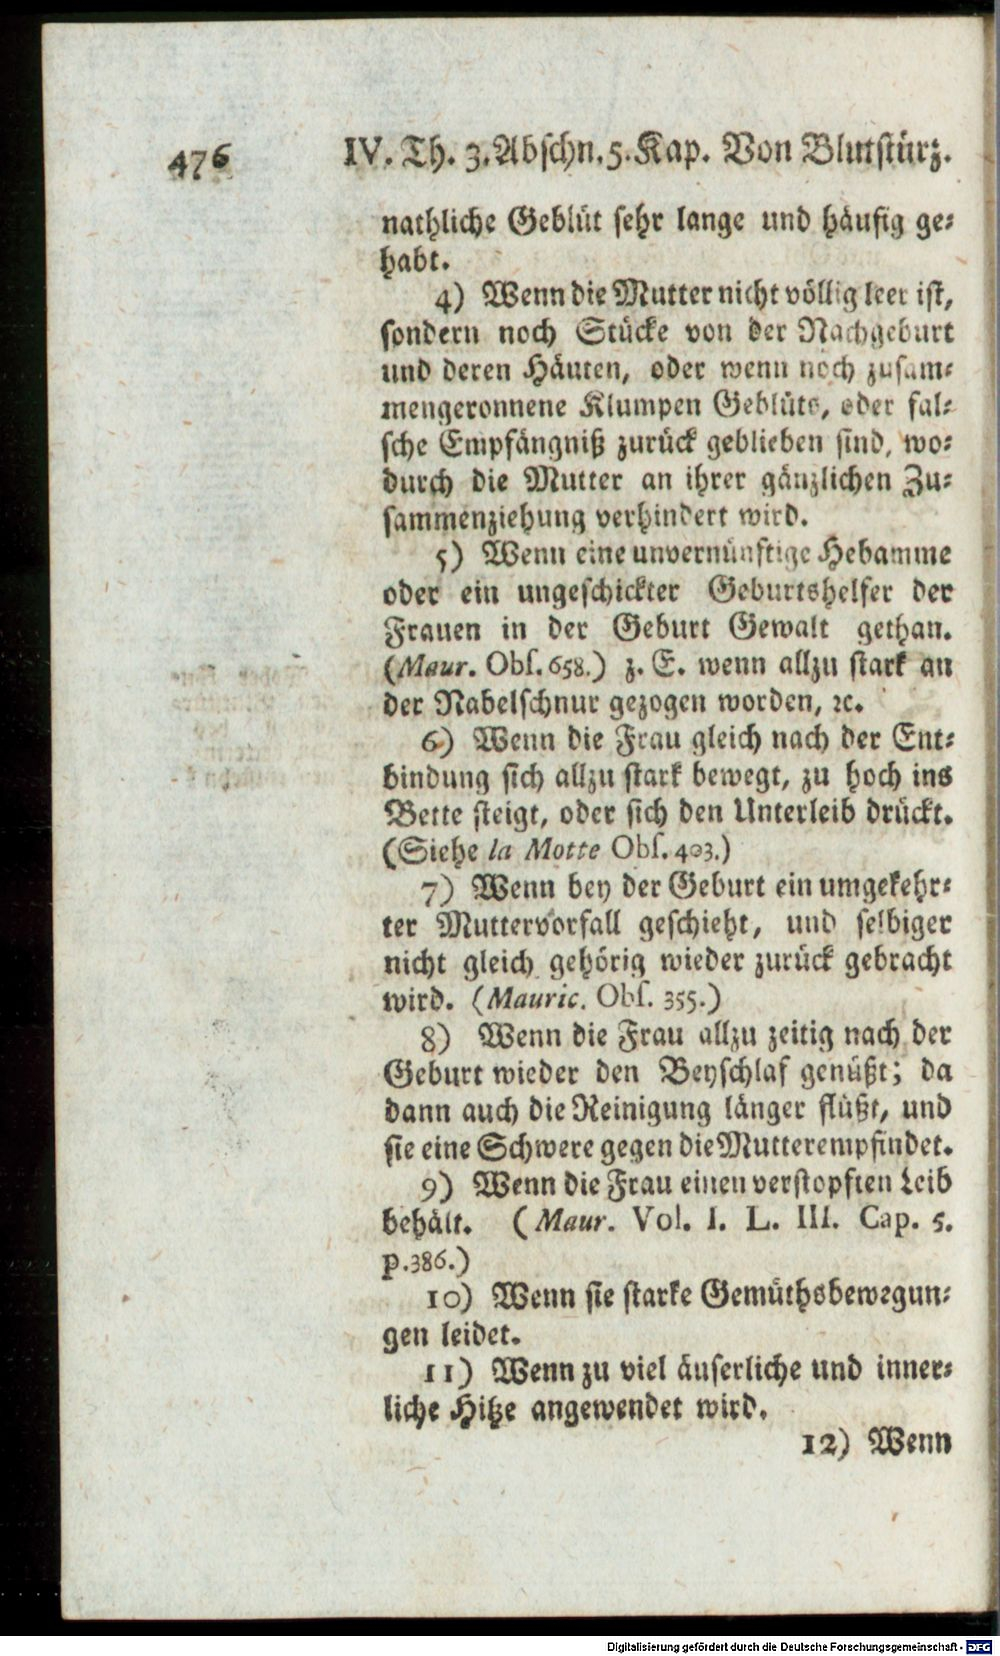 476 IV. Th. 3. Abschn. 5. Kap. Von Blutstürz.
nathliche Geblüt sehr lange und häufig ge-
habt.
4) Wenn die Mutter nicht völlig leer ist,
sondern noch Stücke von der Nachgeburt
und deren Häuten, oder wenn noch zusam-
mengeronnene Klumpen Geblüts, oder fal-
sche Empfängniß zurück geblieben sind, wo-
durch die Mutter an ihrer gänzlichen Zu-
sammenziehung verhindert wird.
5) Wenn eine unvernünftige Hebamme
oder ein ungeschickter Geburtshelfer der
Frauen in der Geburt Gewalt gethan.
(Maur. Obs. 658.) z. E. wenn allzu stark an
der Nabelschnur gezogen worden, ꝛc.
6) Wenn die Frau gleich nach der Ent-
bindung sich allzu stark bewegt, zu hoch ins
Bette steigt, oder sich den Unterleib drückt.
(Siehe la Motte Obs. 403.)
7) Wenn bey der Geburt ein umgekehr-
ter Muttervorfall geschieht, und selbiger
nicht gleich gehörig wieder zurück gebracht
wird. (Mauric. Obs. 355.)
8) Wenn die Frau allzu zeitig nach der
Geburt wieder den Beyschlaf genüßt; da
dann auch die Reinigung länger flüßt, und
sie eine Schwere gegen die Mutter empfindet.
9) Wenn die Frau einen verstopften Leib
behält. (Maur. Vol. I. L. III. Cap. 5.
p. 386.)
10) Wenn sie starke Gemüthsbewegun-
gen leidet.
11) Wenn zu viel äuserliche und inner-
liche Hitze angewendet wird.
12) Wenn
Digitalisierung gefördert durch die Deutsche Forschungsgemeinschaft - DFG